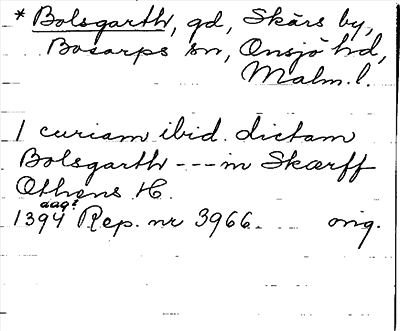 * Bolsgarth, gd, Skårs by,
Bosarps sn, Onsjö hd,
Malm. l.
1 curiam ibid. dictam
Bolsgarth --- in Skærff
Othens H.
1394 aag? Rep. nr 3966. orig.